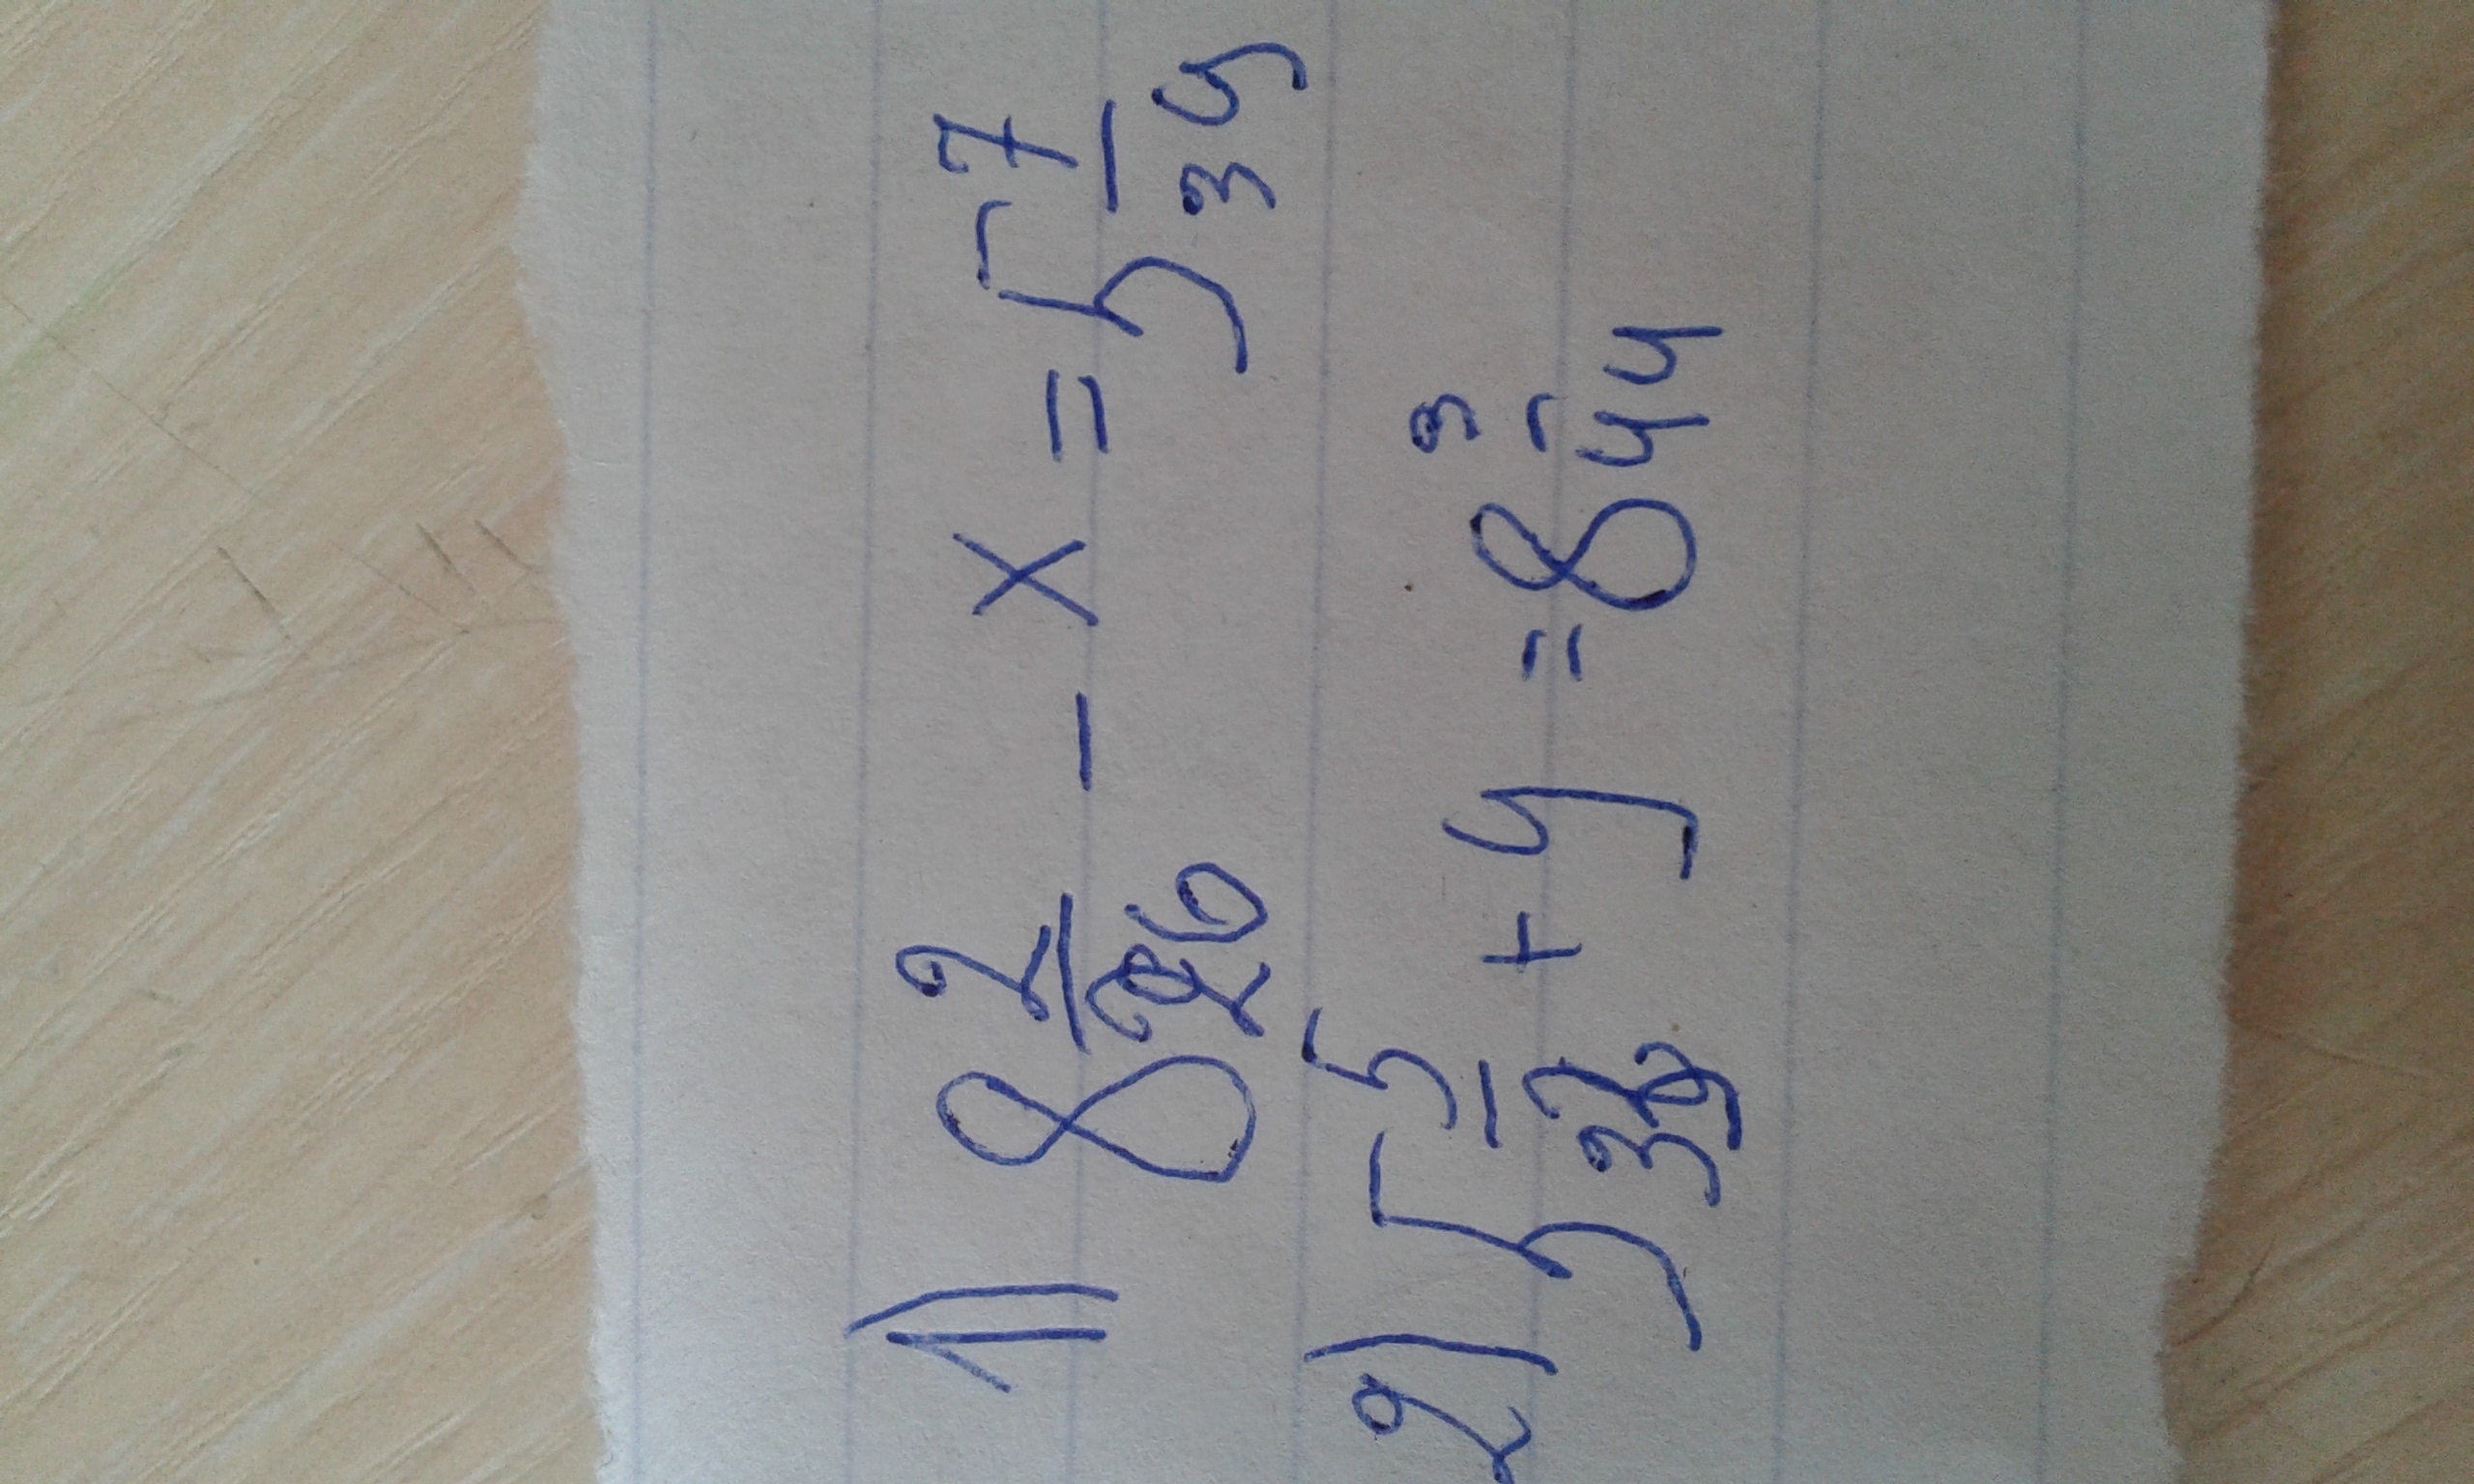 1) 8 2/26 - x = 5 7/39
2) 5 5/33 + y = 8 3/44